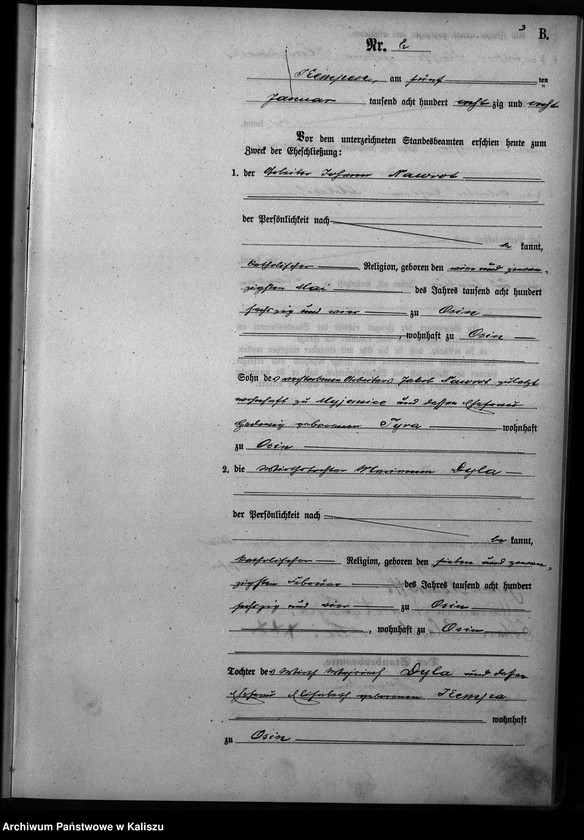 3
B.
Nr. 2
Kempen, am fünf ten
Januar tausend acht hundert acht zig und acht
Vor dem unterzeichneten Standesbeamten erschien heute zum
Zweck der Eheschließung:
1. der Arbeiter Johann Nawrot
der Persönlichkeit nach
be kannt,
katholischer Religion, geboren den vier und zwan-
zigsten Mai des Jahres tausend acht hundert
sechszig und vier zu Osin
, wohnhaft zu Osin
Sohn des verstorbenen Arbeiters Jakob Nawrot zuletzt
wohnhaft zu Myjomice und dessen Ehefrau
Hedwig geborenen Tyra wohnhaft
zu Osin
2. die Wirthstochter Marianna Dyla
der Persönlichkeit nach
be kannt,
katholischer Religion, geboren den sieben und zwan-
zigsten Februar des Jahres tausend acht hundert
sechszig und vier zu Osin
, wohnhaft zu Osin
Tochter des Wirth Dyla und dessen
Ehefrau Elisabeth geborenen Kempa
wohnhaft
zu Osin
Archiwum Państwowe w Kaliszu